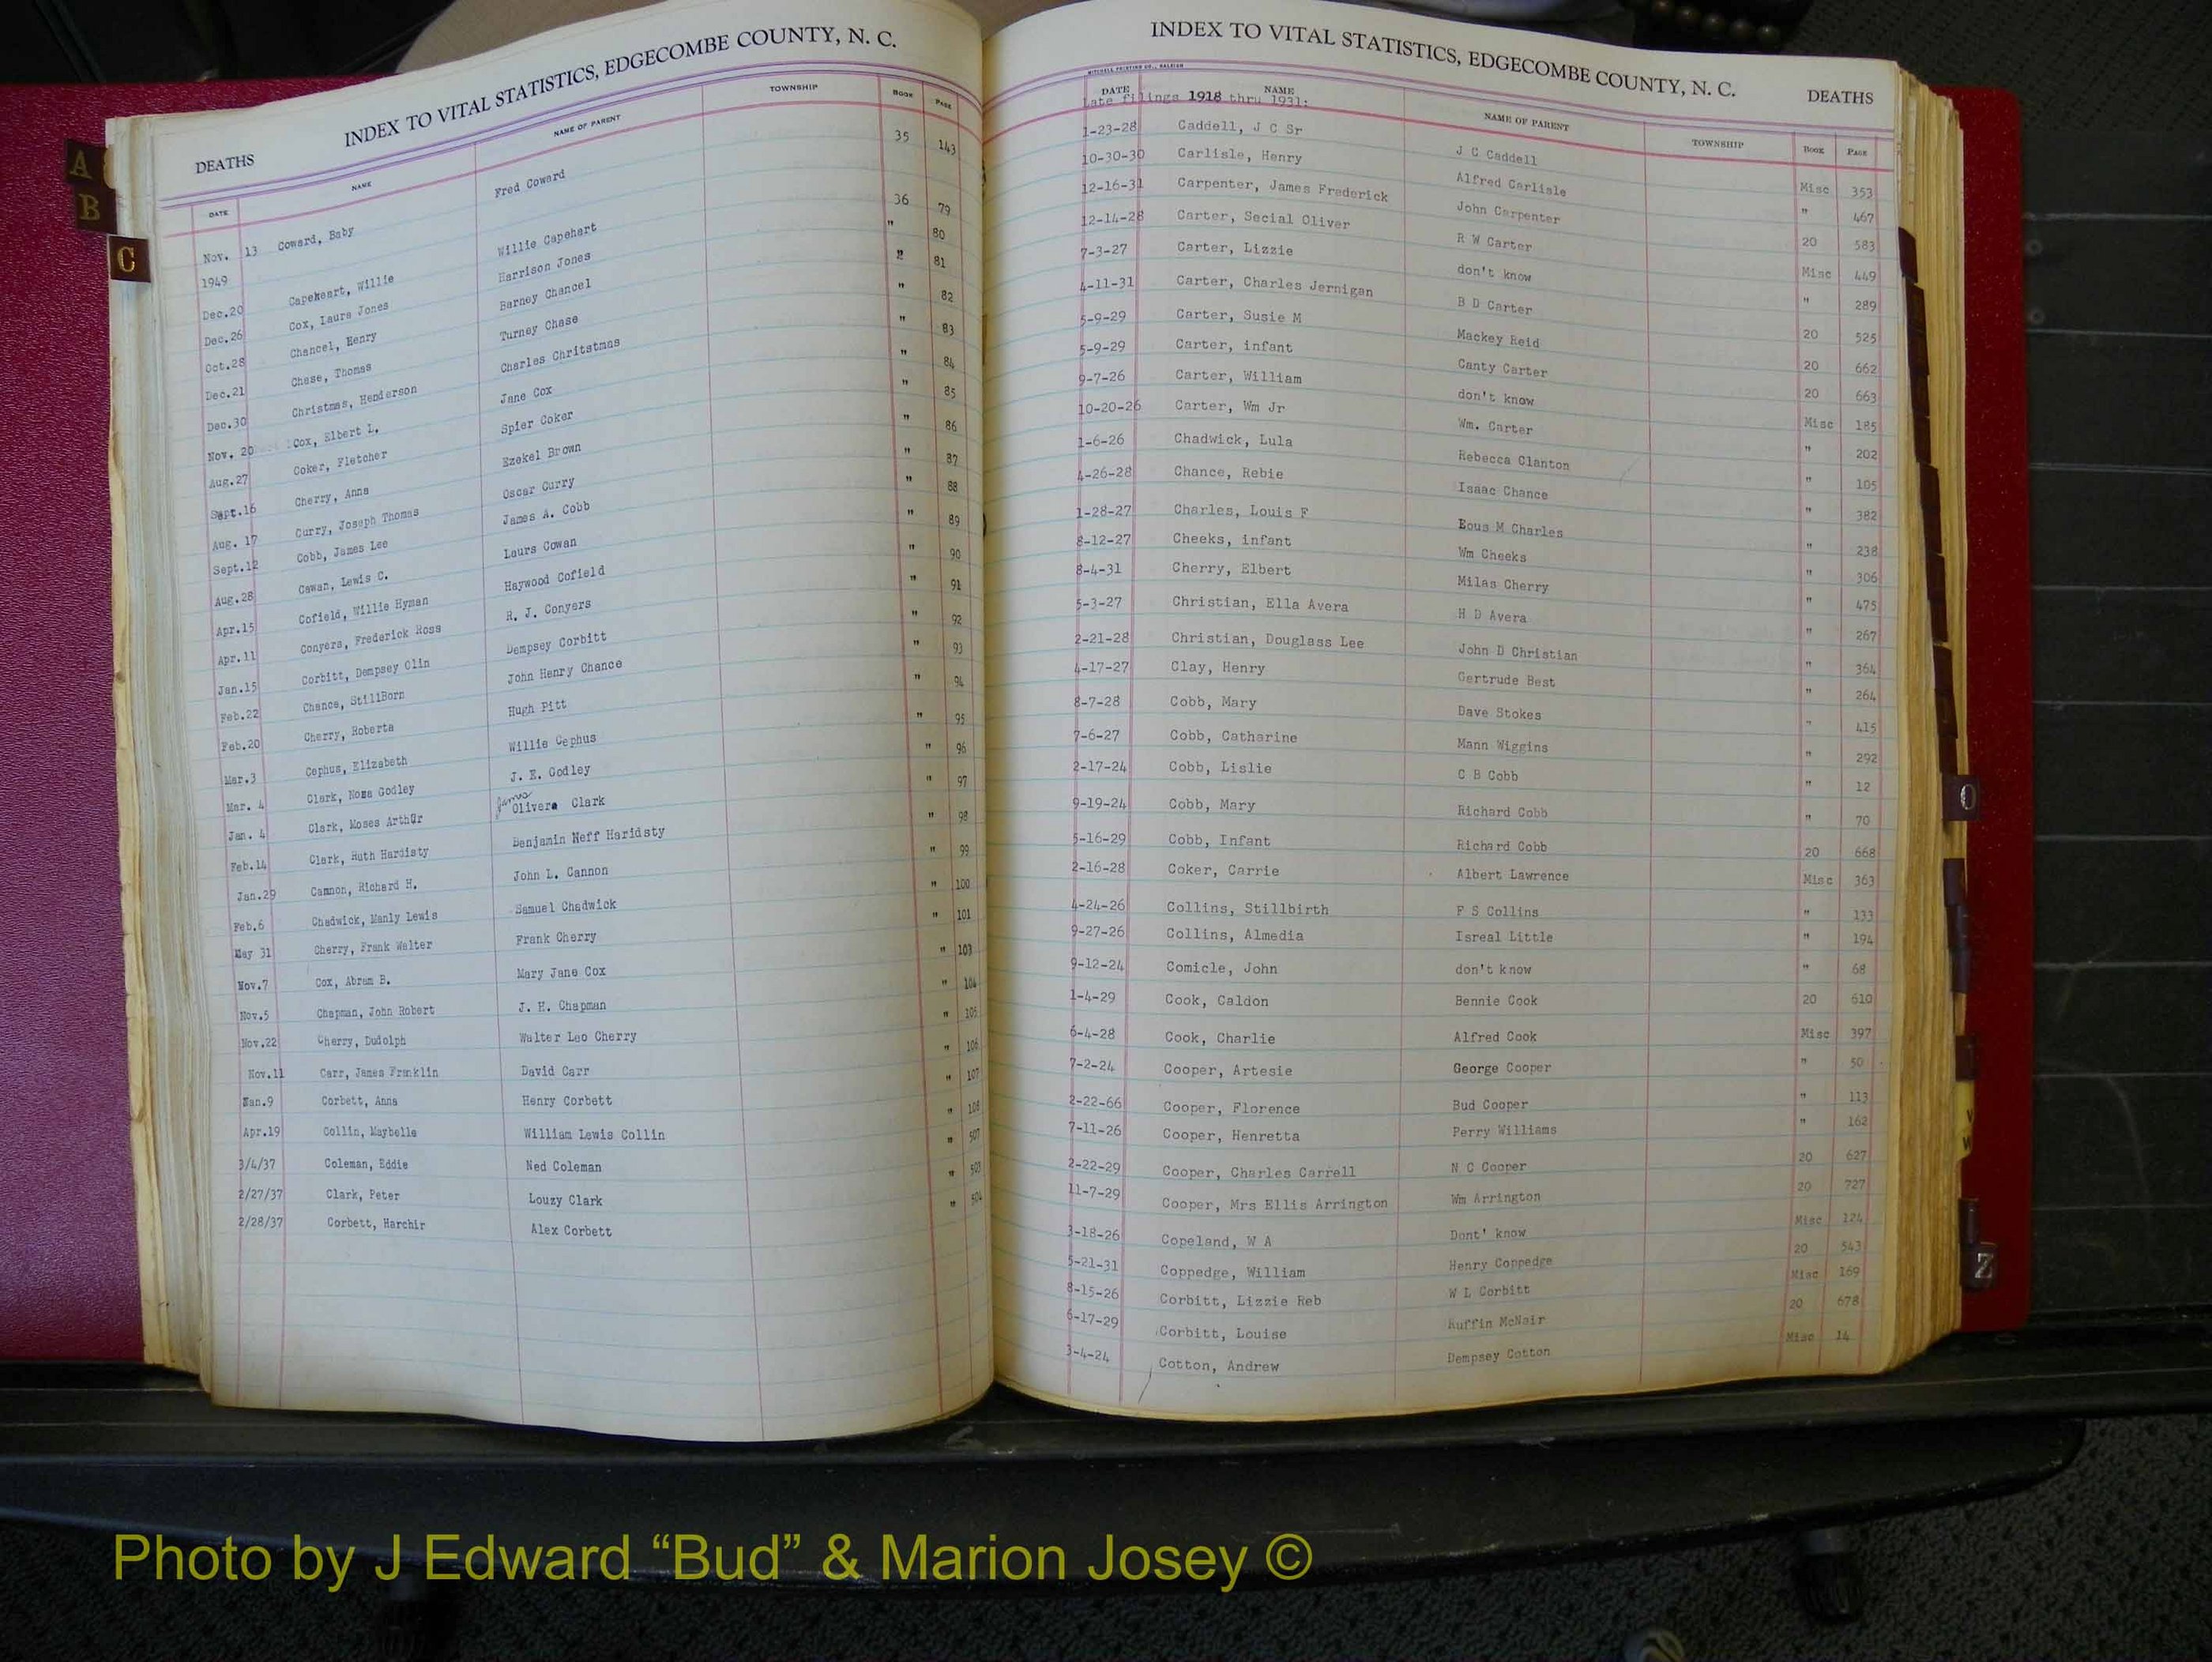 INDEX TO VITAL STATISTICS, EDGECOMBE COUNTY, N. C.
DEATHS
DATE NAME NAME OF PARENT TOWNSHIP BOOK PAGE
Nov. 13 Coward, Baby Fred Coward 35 143
1949
Dec.20 Capekeart, Willie Willie Capehart 36 79
Dec.26 Cox, Laura Jones Harrison Jones " 80
Oct.28 Chancel, Henry Barney Chancel " 81
Dec.21 Chase, Thomas Turney Chase " 82
Dec.30 Christmas, Henderson Charles Chritstmas " 83
Nov. 20 Cox, Elbert L. Jane Cox " 84
Aug.27 Coker, Fletcher Spier Coker " 85
Sept.16 Cherry, Anna Ezekel Brown " 86
Aug. 17 Curry, Joseph Thomas Oscar Curry " 87
Sept.12 Cobb, James Lee James A. Cobb " 88
Aug.28 Cowan, Lewis C. Laura Cowan " 89
Apr.15 Cofield, Willie Hyman Haywood Cofield " 90
Apr.11 Conyers, Frederick Ross R. J. Conyers " 91
Jan.15 Corbitt, Dempsey Olin Dempsey Corbitt " 92
Feb.22 Chance, StillBorn John Henry Chance " 93
Feb.20 Cherry, Roberta Hugh Pitt " 94
Mar.3 Cephus, Elizabeth Willie Cephus " 95
Mar. 4 Clark, Noma Godley J. E. Godley " 96
Jan. 4 Clark, Moses Arthur James Olivera Clark " 97
Feb.14 Clark, Ruth Hardisty Benjamin Neff Haridsty " 98
Jan.29 Cannon, Richard H. John L. Cannon " 99
Feb.6 Chadwick, Manly Lewis Samuel Chadwick " 100
May 31 Cherry, Frank Walter Frank Cherry " 101
Nov.7 Cox, Abram B. Mary Jane Cox " 103
Nov.5 Chapman, John Robert J. H. Chapman " 104
Nov.22 Cherry, Dudolph Walter Leo Cherry " 105
Nov.11 Carr, James Franklin David Carr " 106
Jan.9 Corbett, Anna Henry Corbett " 107
Apr.19 Collin, Maybelle William Lewis Collin " 108
3/4/37 Coleman, Eddie Ned Coleman " 507
2/27/37 Clark, Peter Louzy Clark " 503
2/28/37 Corbett, Harchir Alex Corbett " 504
INDEX TO VITAL STATISTICS, EDGECOMBE COUNTY, N. C.
DEATHS
MITCHELL PRINTING CO., RALEIGH
DATE NAME NAME OF PARENT TOWNSHIP BOOK PAGE
Late filings 1918 thru 1931:
1-23-28 Caddell, J C Sr J C Caddell Misc 353
10-30-30 Carlisle, Henry Alfred Carlisle " 467
12-16-31 Carpenter, James Frederick John Carpenter 20 583
12-14-28 Carter, Secial Oliver R W Carter Misc 449
7-3-27 Carter, Lizzie don't know " 289
4-11-31 Carter, Charles Jernigan B D Carter 20 525
5-9-29 Carter, Susie M Mackey Reid 20 662
5-9-29 Carter, infant Canty Carter 20 663
9-7-26 Carter, William don't know Misc 185
10-20-26 Carter, Wm Jr Wm. Carter " 202
1-6-26 Chadwick, Lula Rebecca Clanton " 105
4-26-28 Chance, Rebie Isaac Chance " 382
1-28-27 Charles, Louis F Eous M Charles " 238
8-12-27 Cheeks, infant Wm Cheeks " 306
8-4-31 Cherry, Elbert Milas Cherry " 475
5-3-27 Christian, Ella Avera H D Avera " 267
2-21-28 Christian, Douglass Lee John D Christian " 364
4-17-27 Clay, Henry Gertrude Best " 264
8-7-28 Cobb, Mary Dave Stokes " 415
7-6-27 Cobb, Catharine Mann Wiggins " 292
2-17-24 Cobb, Lislie C B Cobb " 12
9-19-24 Cobb, Mary Richard Cobb " 70
5-16-29 Cobb, Infant Richard Cobb 20 668
2-16-28 Coker, Carrie Albert Lawrence Misc 363
4-24-26 Collins, Stillbirth F S Collins " 133
9-27-26 Collins, Almedia Isreal Little " 194
9-12-24 Comicle, John don't know " 68
1-4-29 Cook, Caldon Bennie Cook 20 610
6-4-28 Cook, Charlie Alfred Cook Misc 397
7-2-24 Cooper, Artesie George Cooper " 50
2-22-66 Cooper, Florence Bud Cooper " 113
7-11-26 Cooper, Henretta Perry Williams " 162
2-22-29 Cooper, Charles Carrell N C Cooper 20 627
11-7-29 Cooper, Mrs Ellis Arrington Wm Arrington 20 727
3-18-26 Copeland, W A Dont' know Misc 124
5-21-31 Coppedge, William Henry Coppedge 20 543
8-15-26 Corbitt, Lizzie Reb W L Corbitt Misc 169
6-17-29 Corbitt, Louise Ruffin McNair 20 678
3-4-24 Cotton, Andrew Dempsey Cotton Misc 14
A
B
C
O
V
W
Z
Photo by J Edward “Bud” & Marion Josey ©